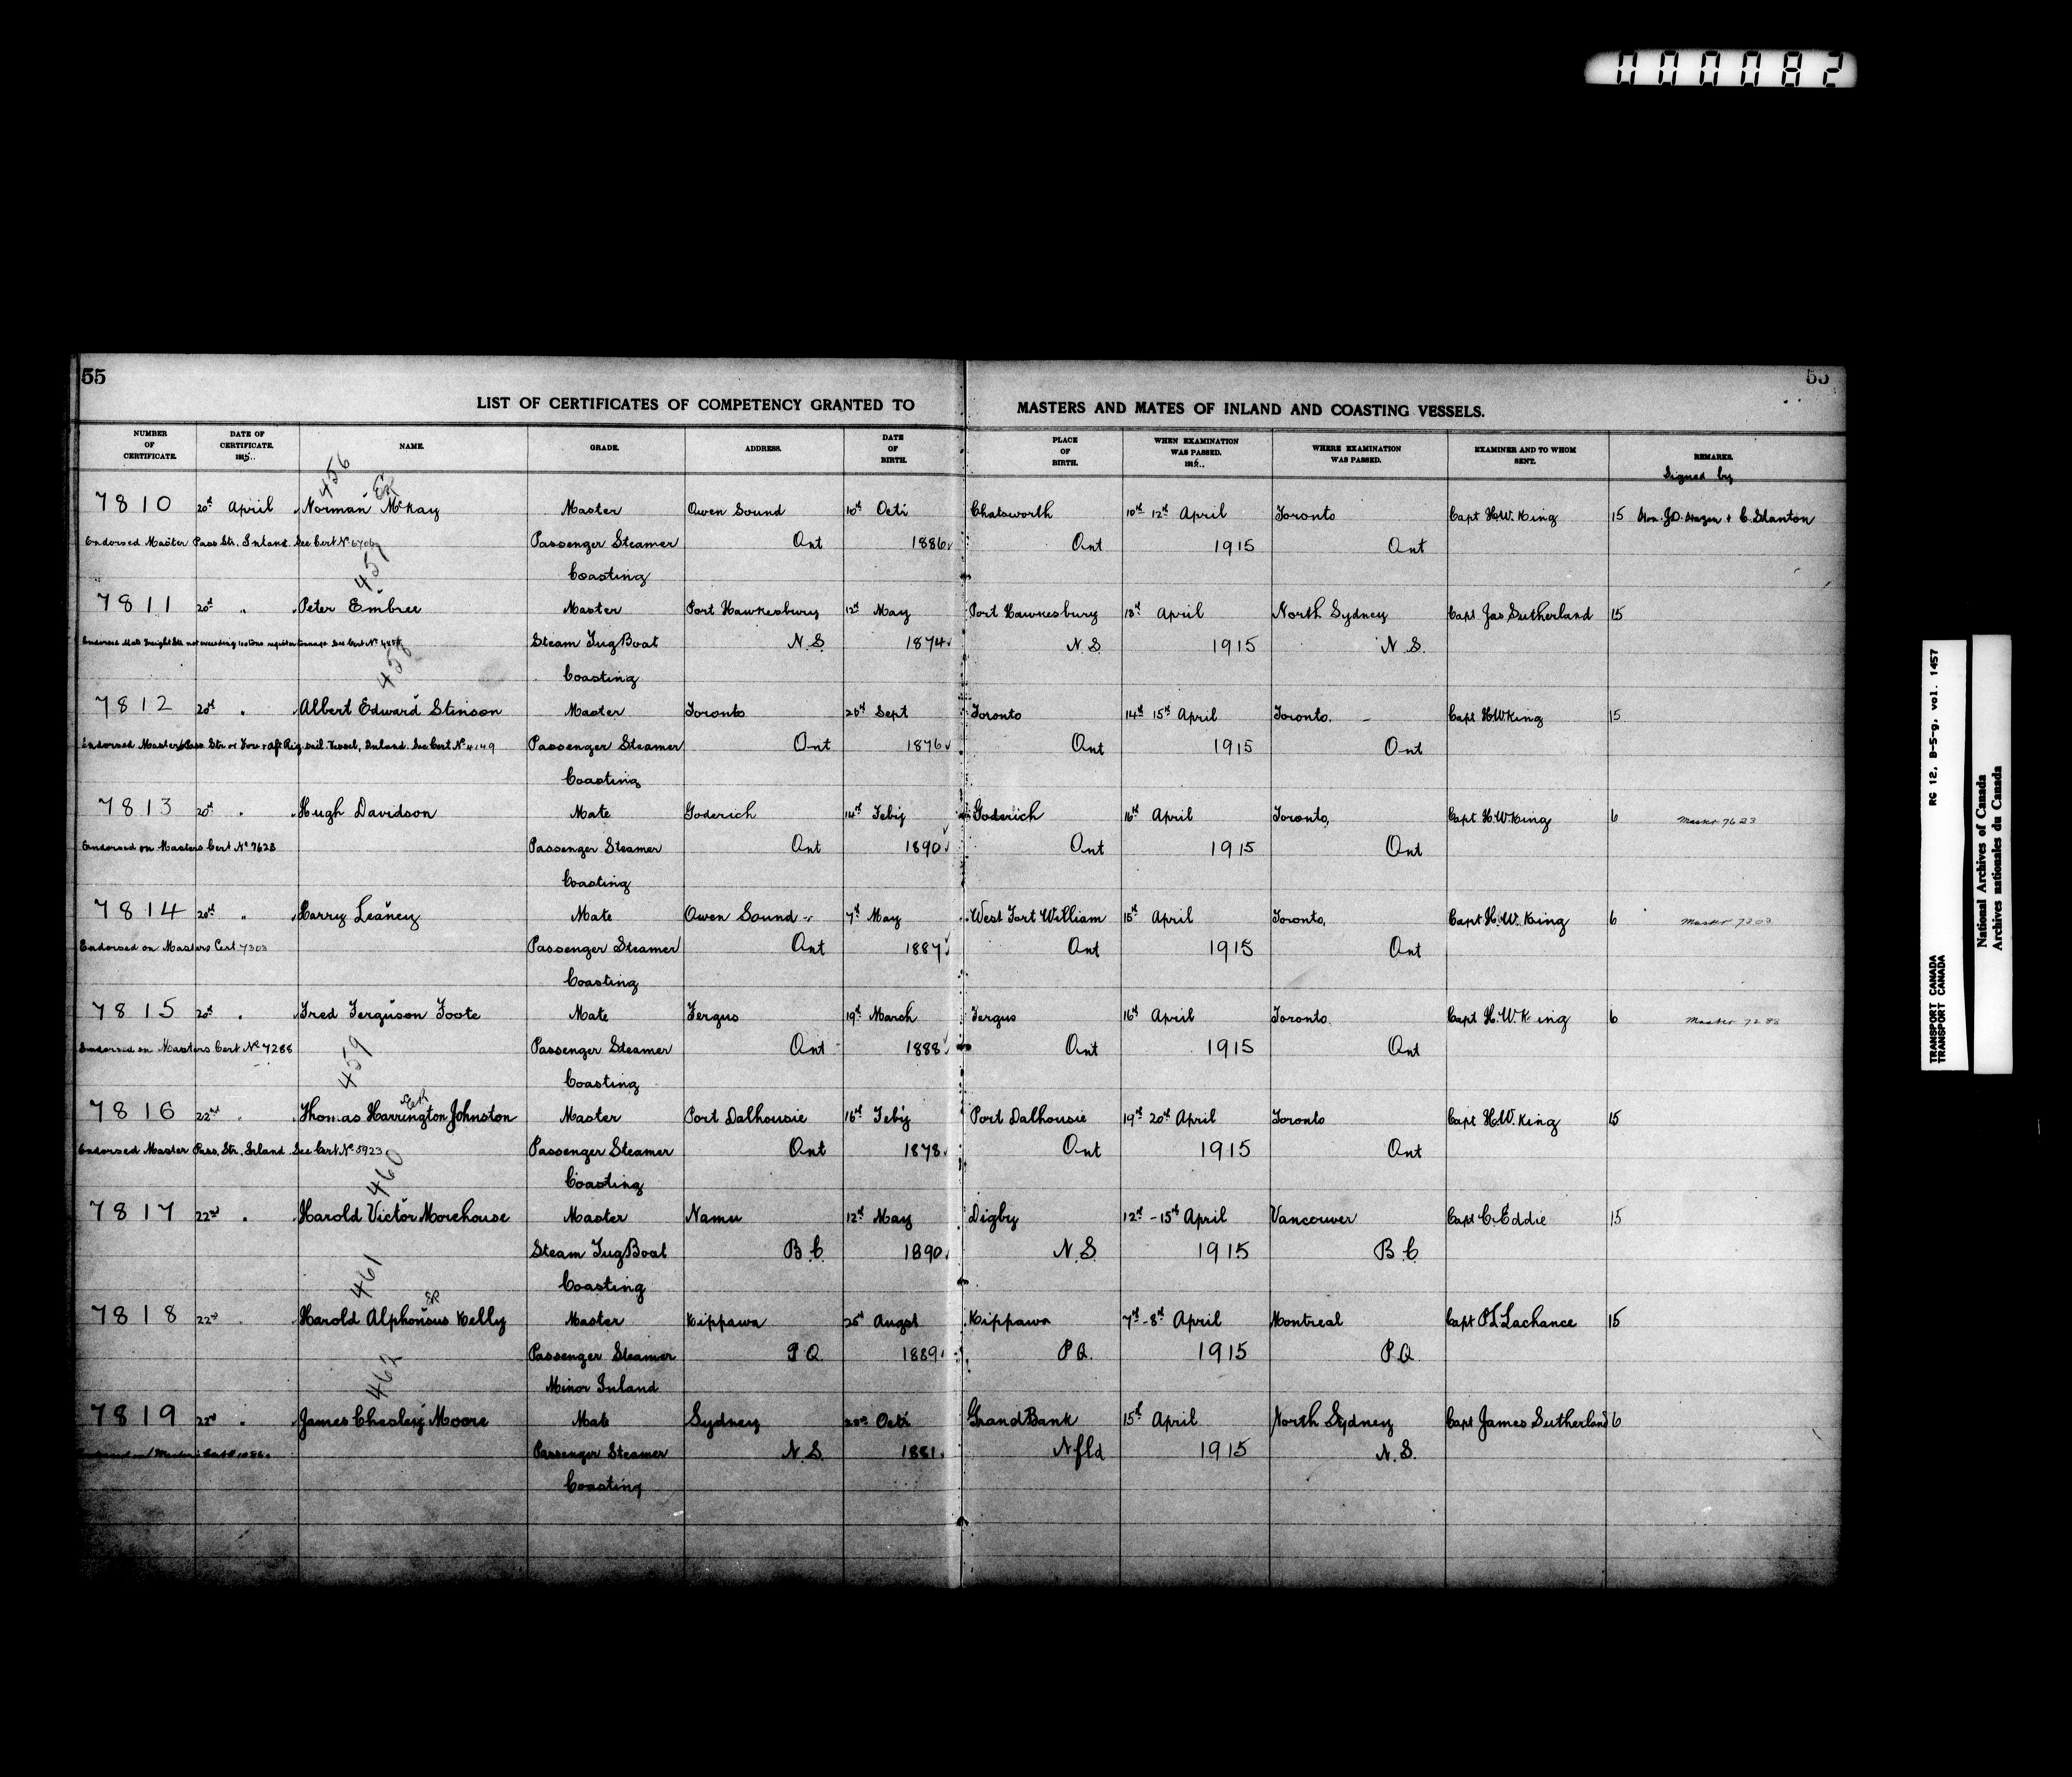 000082
55
55
LIST OF CERTIFICATES OF COMPETENCY GRANTED TO MASTERS AND MATES OF INLAND AND COASTING VESSELS.
NUMBER OF CERTIFICATE. DATE OF CERTIFICATE. 1915.. NAME. GRADE. ADDRESS. DATE OF BIRTH. PLACE OF BIRTH. WHEN EXAMINATION WAS PASSED. 1915.. WHERE EXAMINATION WAS PASSED. EXAMINER AND TO WHOM SENT. REMARKS.
Signed by
456
7810 20th April Norman McKay Master Owen Sound 10th Octr Chatsworth 10th 12th April Toronto Capt H.W. King 15 Hon. J.D. Hazen + C. Stanton
Endorsed Master Pass Str. Inland. See Cert No 6706 Passenger Steamer Ont 1886 Ont 1915 Ont
Coasting
457
7811 20th " Peter Embree Master Port Hawkesbury 12th May Port Hawkesbury 13th April North Sydney Capt Jas Sutherland 15
Steam Tug Boat N.S. 1874 N.S. 1915 N.S.
Coasting
458
7812 20th " Albert Edward Stinson Master Toronto Sept Toronto 14th 15th April Toronto. Capt H.W King 15
Endorsed Master Pass. Str. or Fore & Aft Rig. sail Vessel, Inland. See Cert No 4149 Passenger Steamer Ont 1876 Ont 1915 Ont
Coasting
7813 20th " Hugh Davidson Mate Goderich 14th Feby Goderich 16th April Toronto, Capt H.W King 6 Master 7623
Endorsed on Masters Cert No 7623 Passenger Steamer Ont 1890 Ont 1915 Ont
Coasting
7814 20th " Harry Leaney Mate Owen Sound 7th May West Fort William 15th April Toronto, Capt H.W. King 6 Master 7303
Endorsed on Masters Cert 7303 Passenger Steamer Ont 1887 Ont 1915 Ont
Coasting
7815 20th " Fred Ferguson Foote Mate Fergus 19th March Fergus 16th April Toronto Capt H.W King 6 Master 7288
Endorsed on Masters Cert No 7288 Passenger Steamer Ont 1888 Ont 1915 Ont
Coasting
459
7816 22nd " Thomas Harrington Johnston Master Port Dalhousie 16th Feby Port Dalhousie 19th 20th April Toronto Capt H.W. King 15
Endorsed Master Pass. Str. Inland See Cert No 5923 Passenger Steamer Ont 1878 Ont 1915 Ont
Coasting
460
7817 22nd " Harold Victor Morehouse Master Namu 12th May Digby 12th - 15th April Vancouver Capt C. Eddie 15
Steam Tug Boat B.C. 1890 N.S 1915 B.C.
Coasting
461
7818 22nd Harold Alphonsus Kelly Master Kippawa 25th Augst Kippawa 7th - 8th April Montreal Capt P.L Lachance 15
Passenger Steamer P.Q. 1889 P.Q. 1915 P.Q.
Minor Inland
462
7819 22nd " James Chesley Moore Mate Sydney Octr Grand Bank 15th April North Sydney Capt James Sutherland 6
Passenger Steamer N.S. 1881 Nfld 1915 N.S.
Coasting
TRANSPORT CANADA RG 12, B-5-g, vol. 1457
TRANSPORT CANADA
National Archives of Canada
Archives nationales du Canada